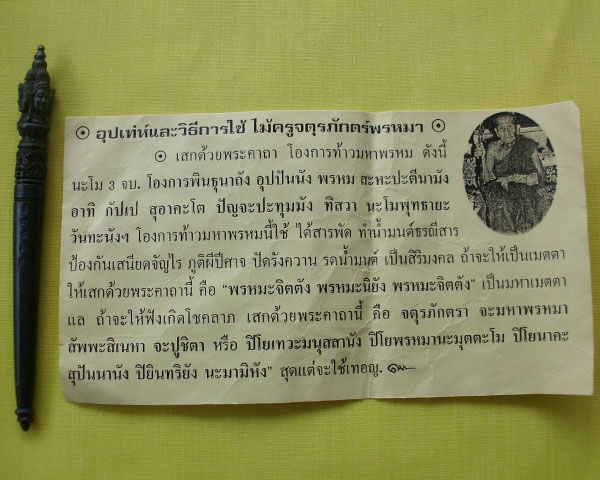 ๏ อุปเท่ห์และวิธีการใช้ ไม้ครูจตุรภักตร์พรหมา ๏
๏ เสกด้วยพระคาถา โองการท้าวมหาพรหม ดังนี้
นะโม 3 จบ. โองการพินธุนาถัง อุปปันนัง พรหม สะหะปะตีนามัง
อาทิ กัปเป สุอาคะโต ปัญจะปะทุมมัง ทิสวา นะโมพุทธายะ
วันทะนังฯ โองการท้าวมหาพรหมนี้ใช้ ได้สารพัด ทำน้ำมนต์ธรณีสาร
ป้องกันเสนียดจัญไร ภูติผีปีศาจ ปัดรังควาน รดน้ำมนต์ เป็นสิริมงคล ถ้าจะให้เป็นเมตตา
ให้เสกด้วยพระคาถานี้ คือ “พรหมะจิตตัง พรหมะนิยัง พรหมะจิตตัง” เป็นมหาเมตตา
แล ถ้าจะให้ฟังเกิดโชคลาภ เสกด้วยพระคาถานี้ คือ จตุรภักตรา จะมหาพรหมา
สัพพะสิเนหา จะปูชิตา หรือ ปิโยเทวะมนุสสานัง ปิโยพรหมานะมุตตะโม ปิโยนาคะ
สุปันนานัง ปิยินทริยัง นะมามิหัง” สุดแต่จะใช้เทอญ. ๛